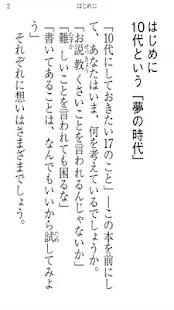 2
はじめに
はじめに
10代という「夢の時代」
「10代にしておきたい17のこと」―この本を前にし
て、あなたはいま、何を考えているでしょうか。
「お説教くさいことを言われるんじゃないか」
「難しいことを言われても困るな」
「書いてあることは、なんでもいいから試してみよ
う」
それぞれに想いはさまざまでしょう。